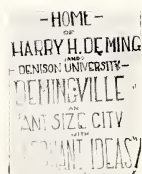 -HOME-
OF
HARRY H. DEMING
AND
DENISON UNIVERSITY-
DEMINGVILLE
AN
ANT SIZE CITY
WITH
IDEAS